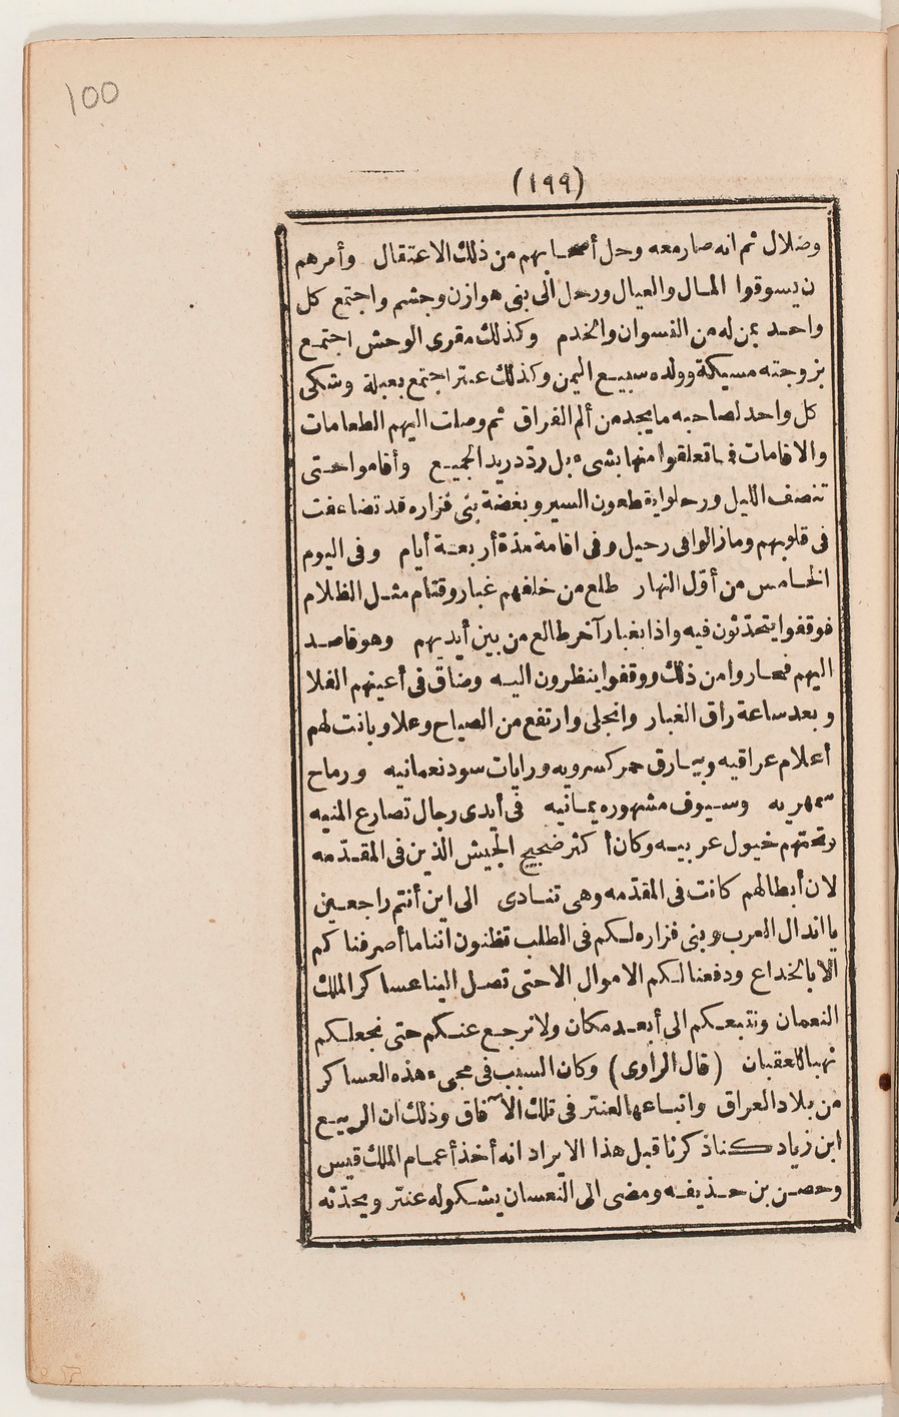 100
(١٩٩)
وضلال ثم انه صار معه وحل أصحابهم من ذلك الاعتقال وأمرهم
ن يسوقوا المال والعيال ورحل الى بنى هوازن وجشم واجتمع كل
واحد بمن له من النسوان والخدم وكذلك مقرى الوحش اجتمع
بزوجته مسيكة وولده سبيع اليمن وكذلك عنتر اجتمع بعبلة وشكى
كل واحد لصاحبه ما يجد من ألم الفراق ثم وصلت اليهم الطعامات
والاقامات فما تعلقوا منها بشىء بل ردّ دريد الجميع وأقاموا حتى
تنصف الليل ورحلوا يقطعون السير وبغضة بنى فزاره قد تضاعفت
فى قلوبهم وما زالوا فى رحيل وفى اقامة مدّة أربعة أيام وفى اليوم
الخامس من أوّل النهار طلع من خلفهم غبار وقتام مثل الظلام
فوقفوا يتحدّثون فيه واذا بغبار آخر طالع من بين أيديهم وهو قاصد
اليهم فحاروا من ذلك ووقفوا ينظرون اليه وضاق فى أعينهم الفلا
و بعد ساعة راق الغبار وانجلى وارتفع من الصياح وعلا وبانت لهم
أعلام عراقيه وبيارق حمر كسرويه ورايات سود نعمانيه ورماح
سمهريه وسيوف مشهوره يمانيه فى أيدى رجال تصارع المنيه
وتحتهم خيول عربيه وكان أكثر ضجيج الجيش الذين فى المقدّمه
لان أبطالهم كانت فى المقدّمه وهى تنادى الى اين أنتم راجعين
يا اندال العرب وبنى فزاره لكم فى الطلب تظنون اننا ما أصرفنا كم
الا بالخداع ودفعنا لكم الاموال الا حتى تصل الينا عساكر الملك
النعمان ونتبعكم الى أبعد مكان ولا نرجع عنكم حتى نجعلكم
نهبا للعقبان (قال الراوى) وكان السبب فى مجىء هذه العساكر
من بلاد العراق واتباعها لعنتر فى تلك الآفاق وذلك ان الربيع
ابن زياد كنا ذكرنا قبل هذا الايراد انه أخذ أعمام الملك قيس
وحصن بن حذيفه ومضى الى النعمان يشكوله عنتر ويحدّثه